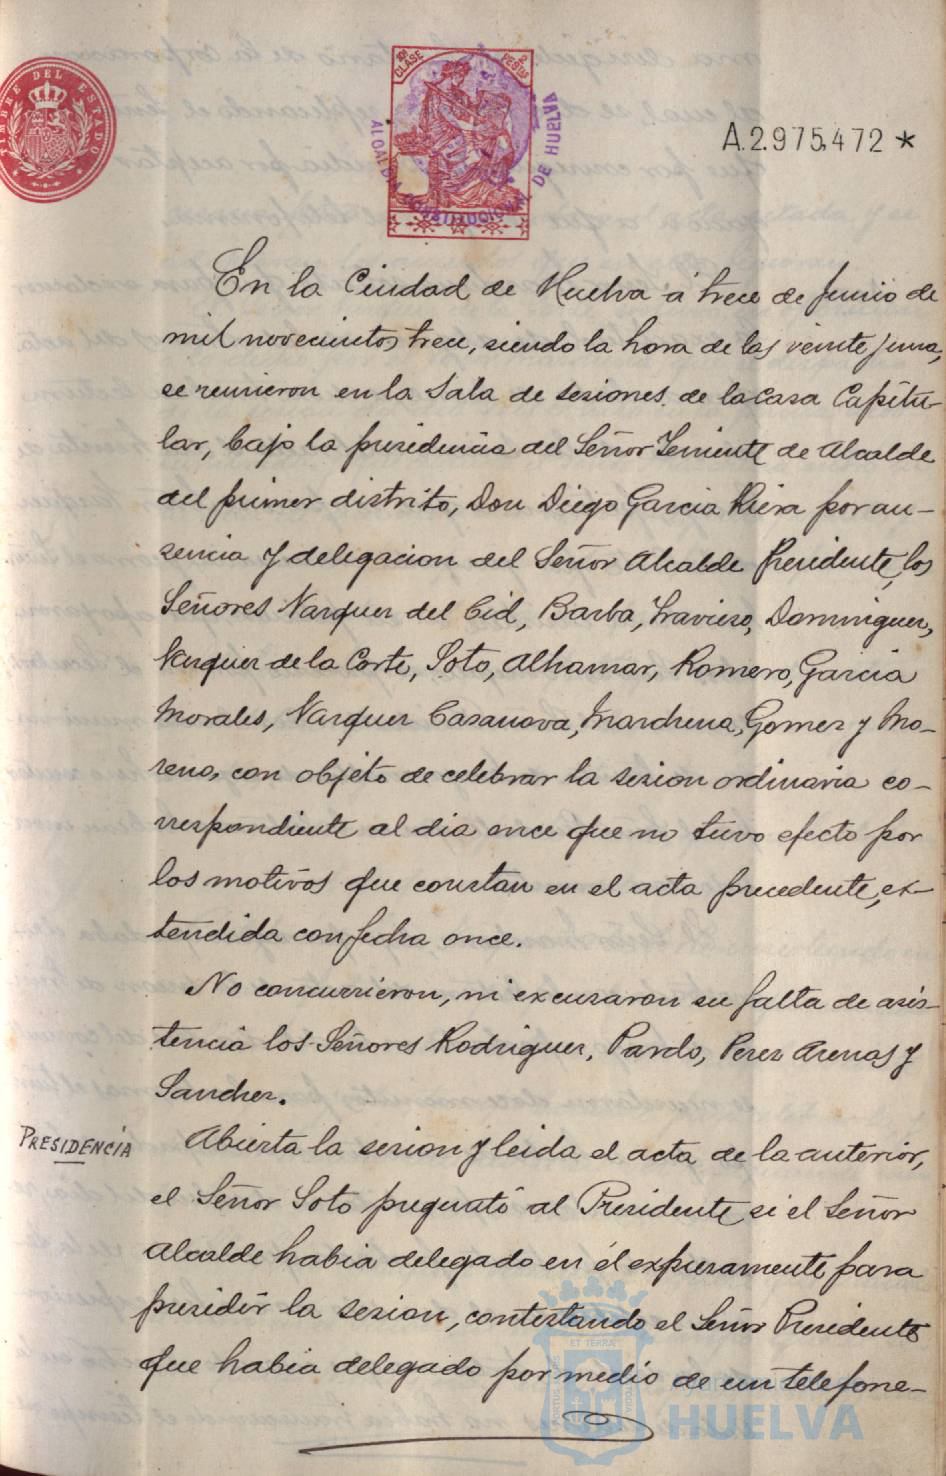 TIMBRE DEL ESTADO
10ª CLASE
2 PESETAS
ALCALDIA CONSTITUCIONAL DE HUELVA
A.2.975.472 *
En la Ciudad de Huelva á trece de Junio de
mil novecientos trece, siendo la hora de las veinte y una,
se reunieron en la Sala de sesiones de la Casa Capitu-
lar, bajo la presidencia del Señor Teniente de Alcalde
del primer distrito, Don Diego Garcia Riera por au-
sencia y delegacion del Señor Alcalde Presidente, los
Señores Vazquez del Cid, Barba, Travieso, Dominguez,
Vazquez de la Corte, Soto, Alhamar, Romero, Garcia
Morales, Vazquez Casanova, Marchena, Gomez y Mo-
reno, con objeto de celebrar la sesion ordinaria co-
rrespondiente al dia once que no tuvo efecto por
los motivos que constan en el acta precedente, ex-
tendida con fecha once.
No concurrieron, ni excusaron su falta de asis-
tencia los Señores Rodriguez, Pardo, Perez Arenas y
Sanchez.
PRESIDENCIA
Abierta la sesion y leida el acta de la anterior,
el Señor Soto preguntó al Presidente si el Señor
Alcalde habia delegado en él expresamente para
presidir la sesion, contestando el Señor Presidente
que habia delegado por medio de un telefone-
HUELVA